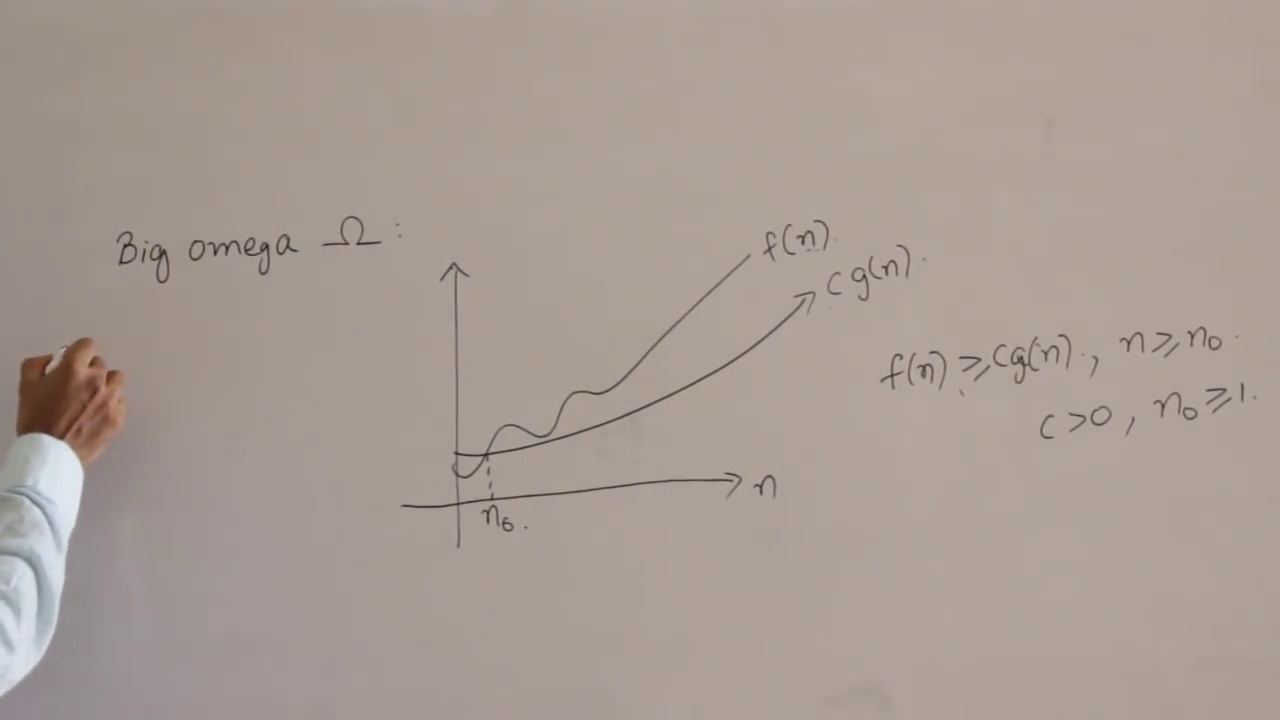 Big omega Ω :
f(n).
c g(n).
f(n) ≥ cg(n)., n ≥ n₀.
c > 0, n₀ ≥ 1.
n
n₀.